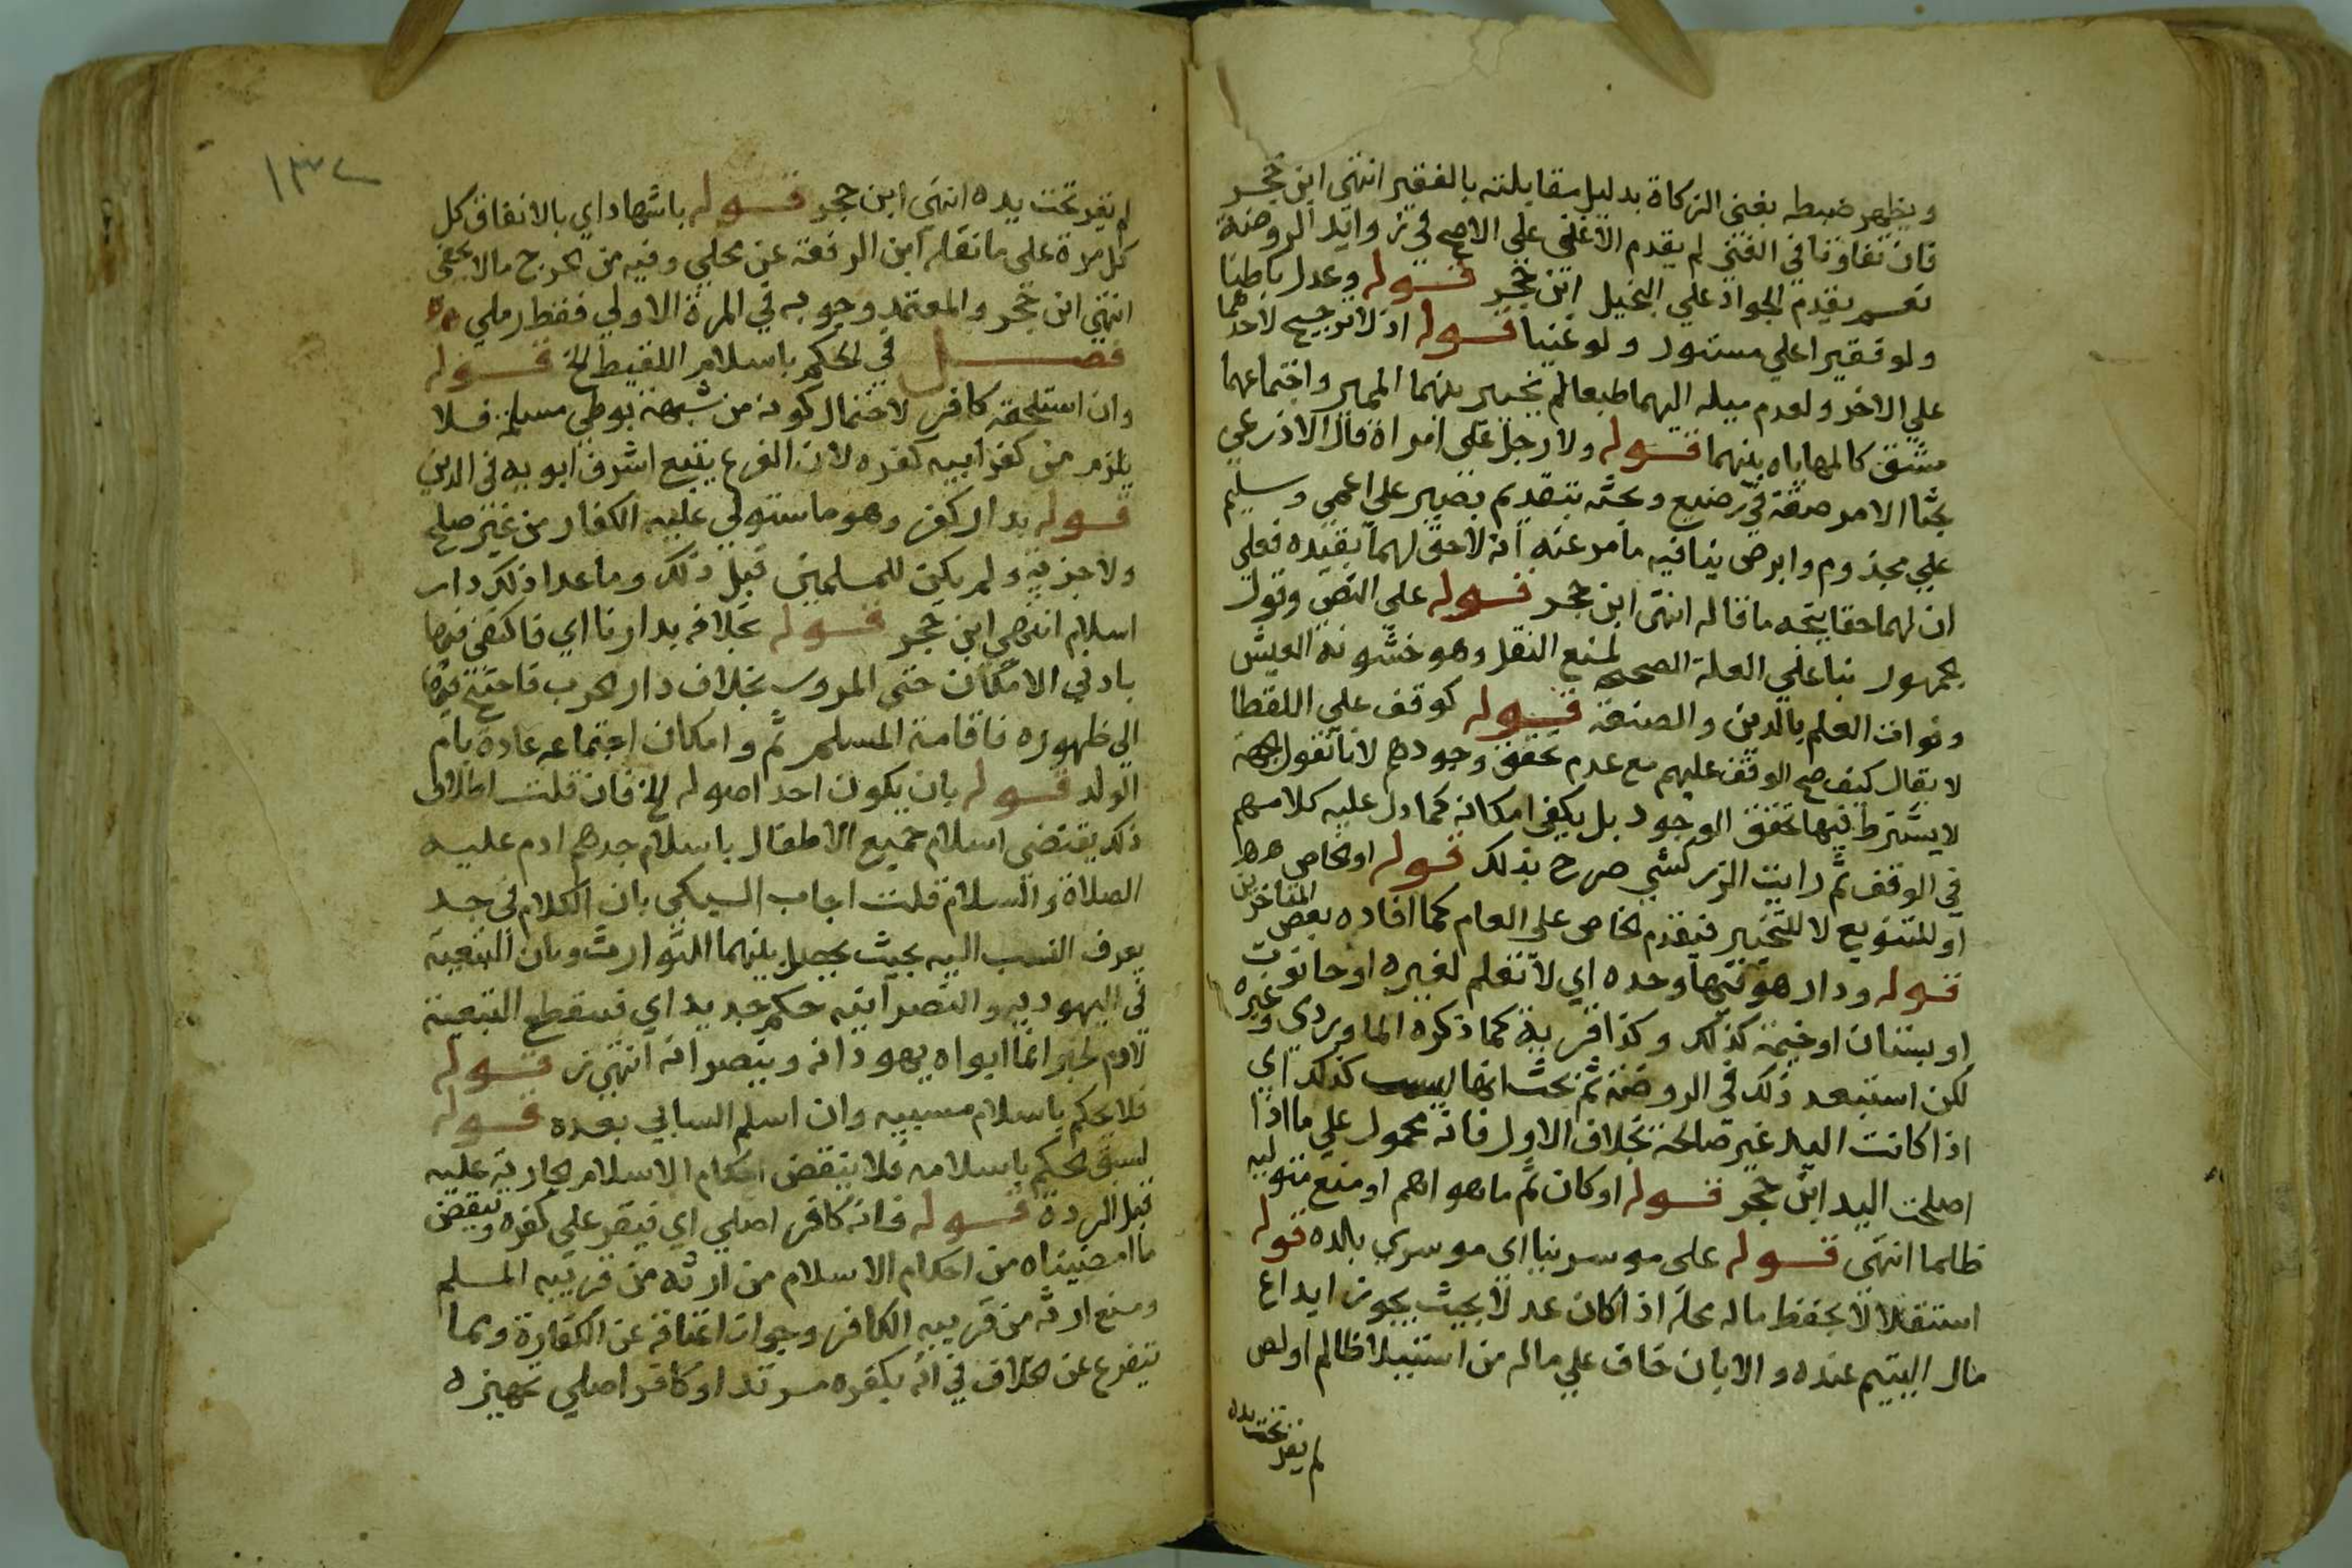 ويظهر ضبطه بغنى الزكاة بدليل مقابلته بالفقير انتهي ابن حجر
فان تفاوتا في الغني لم يقدم الاغني علي الاصح في زوايد الروضة
نعم يقدم الجواد علي البخيل ابن حجر قوله وعدل باطنا
ولو فقيرا علي مستور ولو غنيا قوله اذ لا ترجيح لاحدهما
علي الاخر ولعدم ميله اليهما طبعا لم يخير بينهما المميز واجتماعهما
مشق كالمهاياه بينهما قوله ولا رجل علي امراة قال الاذرعي
بحثا الا مرضعة في رضيع وبحثه بتقديم بصير علي اعمي وسليم
علي مجذوم وابرص ينافيه ما مر عنه انه لا حق لهما بقيده فعلي
ان لهما حقا يتجه ما قاله انتهى ابن حجر قوله علي النص وقول
الجمهور بنا علي العلة الصحيحه لمنع النقل وهو خشونة العيش
وفوات العلم بالدين والصنعة قوله كوقف علي اللقطا
لا يقال كيف صح الوقف عليهم مع عدم تحقق وجودهم لانا نقول الجهة
لا يشترط فيها تحقق الوجود بل يكفي امكانه كما دل عليه كلامهم
في الوقف ثم رايت الزركشي صرح بذلك قوله او الخاص
او للتنويع لا للتخيير فيقدم الخاص علي العام كما افاده بعض المتاخرين
قوله ودار هو فيها وحده اي لا تعلم لغيره او حانوت
او بستان او خيمة كذلك وكذا قرية كما ذكره الماوردي وغيره
لكن استبعد ذلك في الروضة ثم بحث انها ليست كذلك اي
اذا كانت اليد غير صالحة بخلاف الاول فانه محمول علي ما اذا
اصلحت اليد ابن حجر قوله او كان ثم ما هو اهم او منع متوليه
ظلما انتهي قوله على موسرينا اي موسري بلده قوله
استقلالا لا بحفظ ماله محله اذا كان عدلا بحيث يجوز ايداع
مال اليتيم عنده والا بان خاف علي ماله من استيلا ظالم او لص
لم يقر تحت يده
١٣٢
لم يقر تحت يده انتهي ابن حجر قوله باشهاد اي بالانفاق كل
كل مرة على ما نقله ابن الرفعة عن مجلي وفيه من الحرج ما لا يخفي
انتهي ابن حجر والمعتمد وجوبه في المرة الاولي فقط رملي
فصل في الحكم باسلام اللقيط الخ قوله
وان استلحقه كافر لاحتمال كونه من شبهة بوطي مسلمة فلا
يلزم من كفر ابيه كفره لان الفرع يتبع اشرف ابويه في الدين
قوله بدار كفر وهو ما ستولي عليه الكفار من غير صلح
ولا جزية ولم يكن للمسلمين قبل ذلك وما عدا ذلك دار
اسلام انتهي ابن حجر قوله بخلافه بدارنا اي فاكتفي فيها
بادني الامكان حتي المرور بخلاف دار الحرب فاحتيج فيها
الي ظهوره فاقامة المسلم ثم وامكان اجتماعه عادة بام
الولد قوله بان يكون احد اصوله الخ فان قلت اطلاق
ذلك يقتضي اسلام جميع الاطفال باسلام جدهم ادم عليه
الصلاة والسلام قلت اجاب السبكي بان الكلام في جد
يعرف النسب اليه بحيث يحصل بينهما التوارث وبان التبعية
في اليهوديه والنصرانيه حكم جديد اي فتنقطع التبعية
لادم لخبر انما ابواه يهودانه وينصرانه انتهي ز قوله
فلا يحكم باسلام مسبيه وان اسلم السابي بعده قوله
لسبق الحكم باسلامه فلا ينقض احكام الاسلام الجارية عليه
قبل الردة قوله فانه كافر اصلي اي فيقر علي كفره وينقض
ما امضيناه من احكام الاسلام من ارثه من قريبه المسلم
ومنع ارثه من قريبه الكافر وجواز اعتاقه عن الكفارة ومما
يتفرع عن الخلاف في انه بكفره مرتد او كافر اصلي تجهيزه